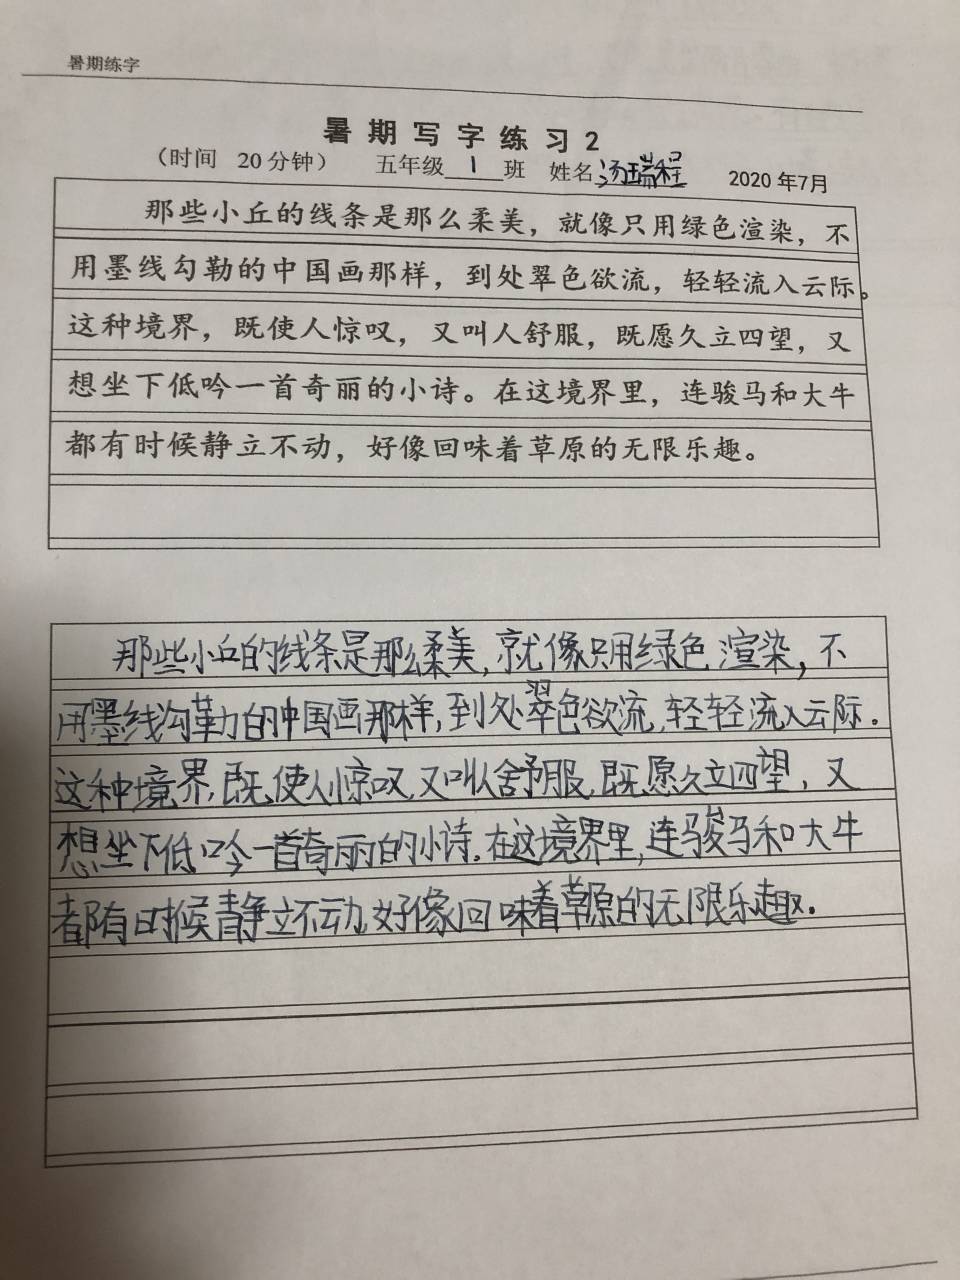 暑期练字
暑期写字练习2
（时间 20分钟） 五年级 1 班 姓名 汤瑞程 2020年7月
那些小丘的线条是那么柔美，就像只用绿色渲染，不
用墨线勾勒的中国画那样，到处翠色欲流，轻轻流入云际。
这种境界，既使人惊叹，又叫人舒服，既愿久立四望，又
想坐下低吟一首奇丽的小诗。在这境界里，连骏马和大牛
都有时候静立不动，好像回味着草原的无限乐趣。
那些小丘的线条是那么柔美，就像只用绿色渲染，不
用墨线沟勒的中国画那样，到处翠色欲流，轻轻流入云际.
这种境界，既使人惊叹，又叫人舒服，既愿久立四望，又
想坐下低吟一首奇丽的小诗.在这境界里，连骏马和大牛
都有时候静立不动，好像回味着草原的无限乐趣.